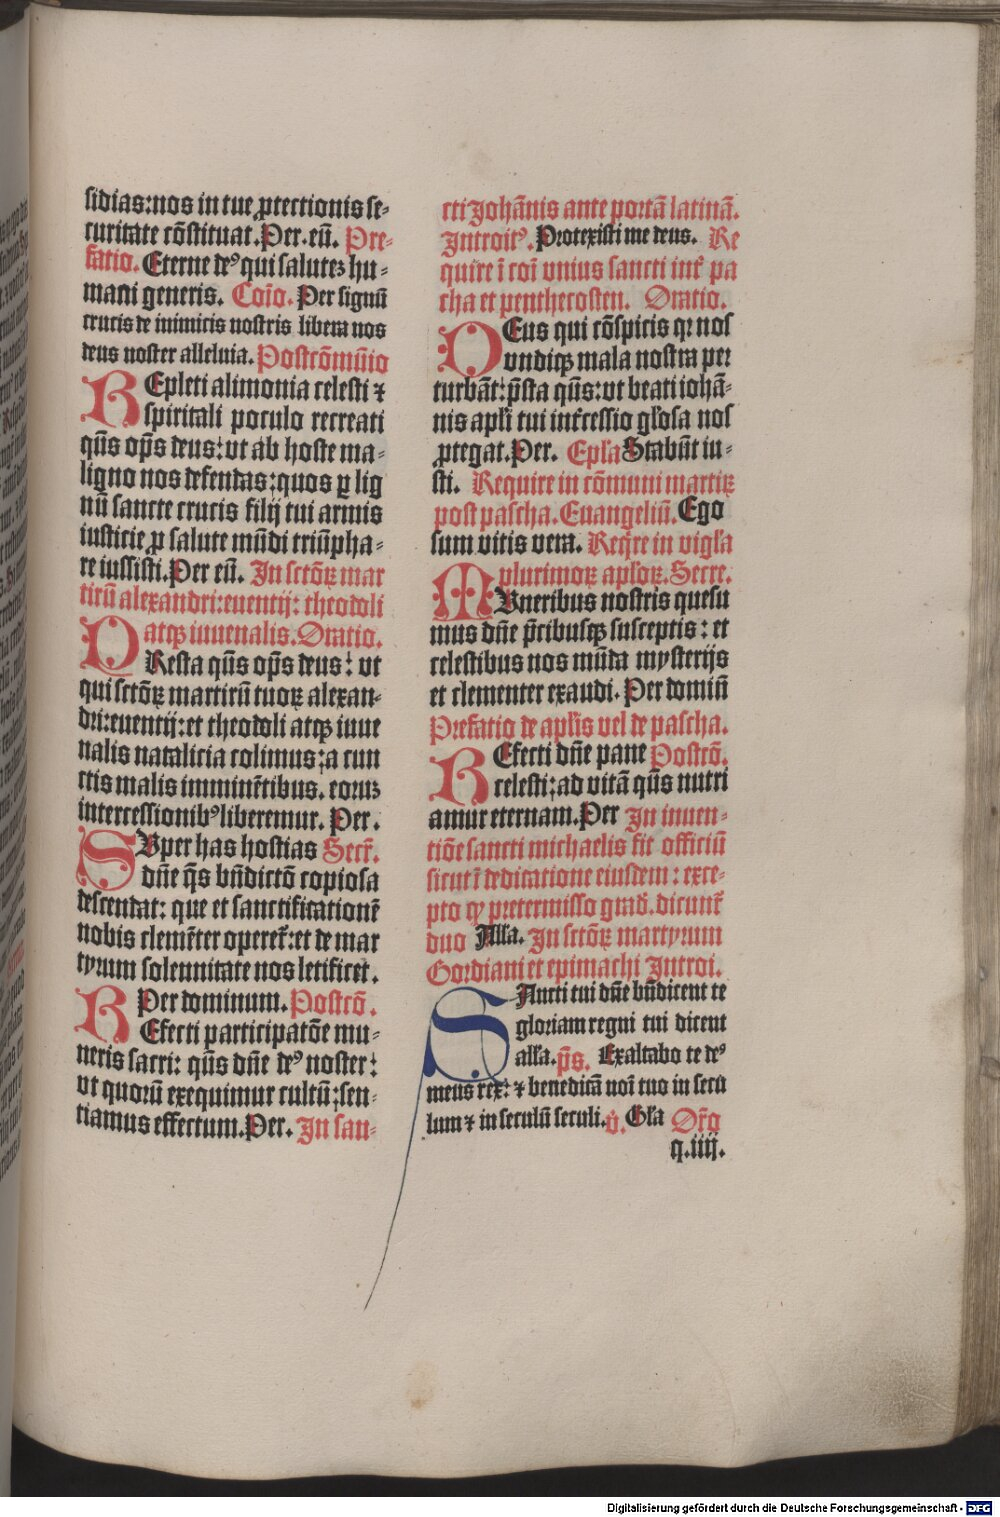 sidias:nos in tue ꝓtectionis se⸗
curitate cōstituat.Per.eū. Pre⸗
fatio. Eterne deꝰ qui salutez hu⸗
mani generis. Coīo. Per signū
crucis de inimicis nostris libera nos
deus noster alleluia. Postcōmūnio
REpleti alimonia celesti ⁊
spirituali poculo recreati
qūs opūs deus: vt ab hoste ma⸗
ligno nos defendas:quos ꝑ lig
nū sancte crucis filij tui armis
iusticie ꝓ salute mūdi triūpha⸗
re iussisti.Per eū. In sctōꝝ mar
tirū alexandri:euentij: theodoli
atqꝫ iuuenalis.Oratio.
PResta qūs opūs deus: vt
qui sctōꝝ martirū tuoꝝ alexan⸗
dri:euentij:et theodoli atqꝫ iuue
nalis natalicia colimus:a cun
ctis malis imminētibus. eorum
intercessionibꝰ liberemur. Per.
SVper has hostias Secr̄.
dn̄e q̄s bn̄dictō copiosa
descendat: que et sanctificationē
nobis clemēter operet̄:et de mar
tyrum solennitate nos letificet.
Per dominum. Postcō.
REfecti participatōe mu⸗
neris sacri: qūs dn̄e deꝰ noster:
vt quorū exequimur cultū:sen⸗
tiamus effectum.Per. In san⸗
cti Johānis ante portā latinā.
Introitꝰ. Protexisti me deus. Re
quire ī coī vnius sancti int̄ pa
cha et penthecosten. Oratio.
DEus qui cōspicis qꝛ nos
vndiqꝫ mala nostra per
turbāt:p̄sta qūs:vt beati iohā⸗
nis apl̄i tui int̄cessio gl̄osa nos
ꝓtegat.Per. Epl̄a Stabūt iu⸗
sti. Require in cōmuni martiꝝ
post pascha. Euangeliū. Ego
sum vitis vera. Reqr̄e in vigl̄a
plurimoꝝ apl̄oꝝ. Secre.
MVneribus nostris quesu
mus dn̄e p̄cibusqꝫ susceptis: et
celestibus nos mūda mysterijs
et clementer exaudi. Per dominū
Prefatio de apl̄is vel de pascha.
REfecti dn̄e pane Postcō.
celesti:ad vitā qūs nutri
amur eternam.Per In inuen⸗
tiōe sancti michaelis fit officiū
sicut ī dedicatione eiusdem: exce⸗
pto qꝫ pretermisso grad̄. dicunt̄
duo Allā. In sctōꝝ martyrum
Gordiani et epimachi Introi.
SAncti tui dn̄e bn̄dicent te
gloriam regni tui dicent
all̄a. p̄s. Exaltabo te deꝰ
meus rex: ⁊ benedicā noī tuo in secu
lum ⁊ in seculū seculi. v̄. Gl̄a Or̄o
q.iiij.
Digitalisierung gefördert durch die Deutsche Forschungsgemeinschaft - DFG